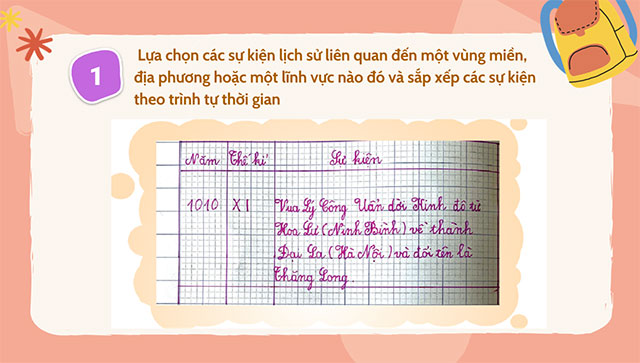 1
Lựa chọn các sự kiện lịch sử liên quan đến một vùng miền,
địa phương hoặc một lĩnh vực nào đó và sắp xếp các sự kiện
theo trình tự thời gian
Năm Thế kỉ Sự kiện
1010 XI Vua Lý Công Uẩn dời Kinh đô từ
Hoa Lư (Ninh Bình) về thành
Đại La (Hà Nội) và đổi tên là
Thăng Long.